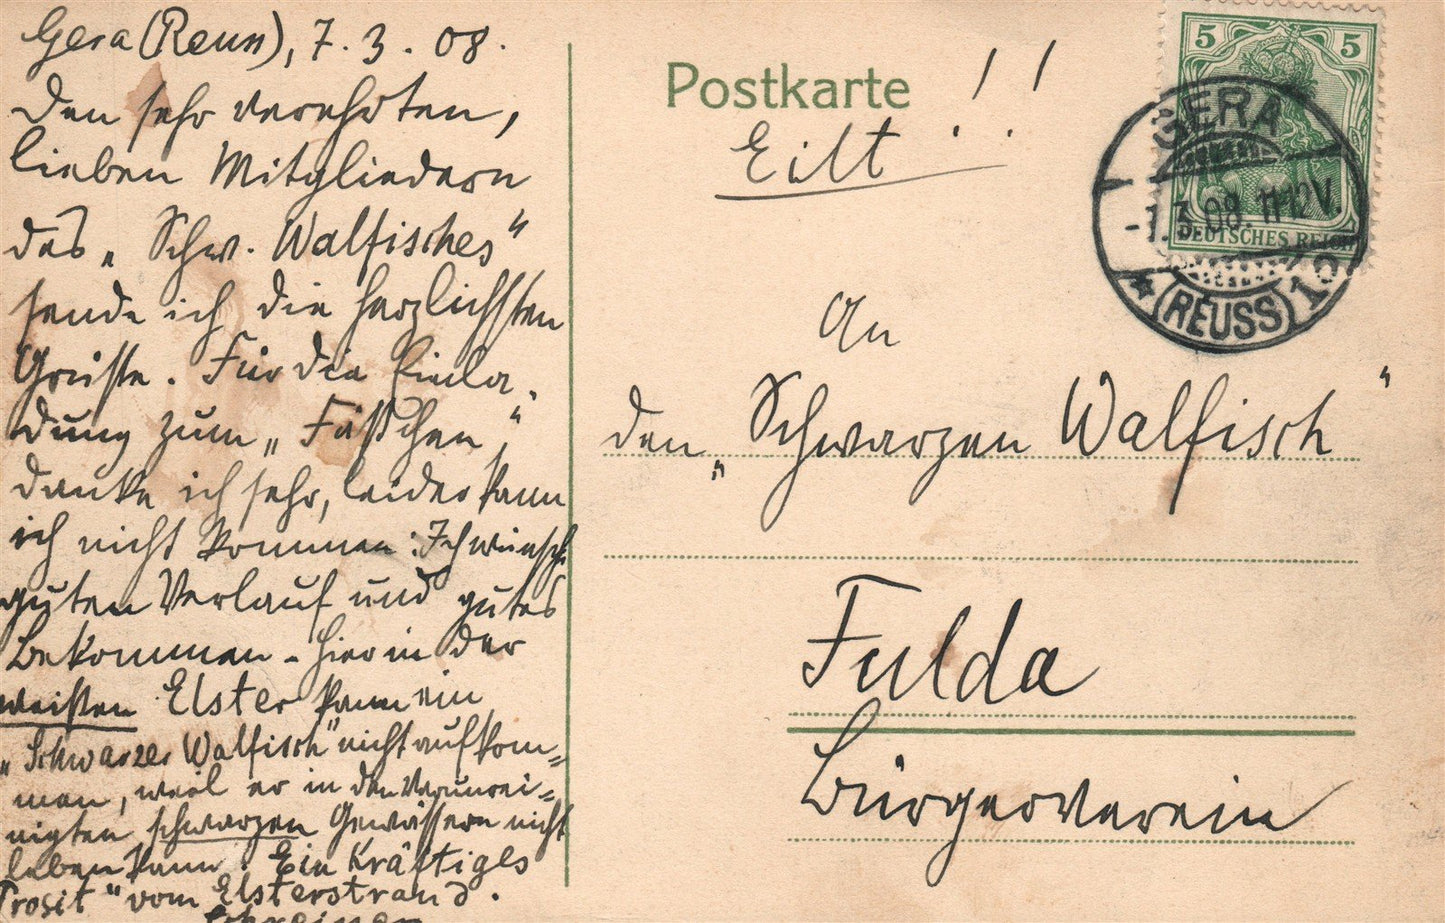 Gera (Reuss), 7. 3. 08.
Den sehr verehrten,
lieben Mitgliedern
des „Schw. Walfisches“
sende ich die herzlichsten
Grüsse. Für die Einla-
dung zum „Fäßchen“
danke ich sehr, leider kann
ich nicht kommen. Ich wünsche
guten Verlauf und gutes
Bekommen - Hier in der
weißen Elster kann ein
„Schwarzer Walfisch“ nicht aufkom=
men, weil er in den verunrei=
nigten schwarzen Gewässern nicht
leben kann. Ein kräftiges
Prosit“ vom Elsterstrand.
Postkarte
Eilt!!
5 5
DEUTSCHES REICH
GERA
-1.3.08. 11-12V.
(REUSS)
An
den „Schwarzen Walfisch“
Fulda
Bürgerverein